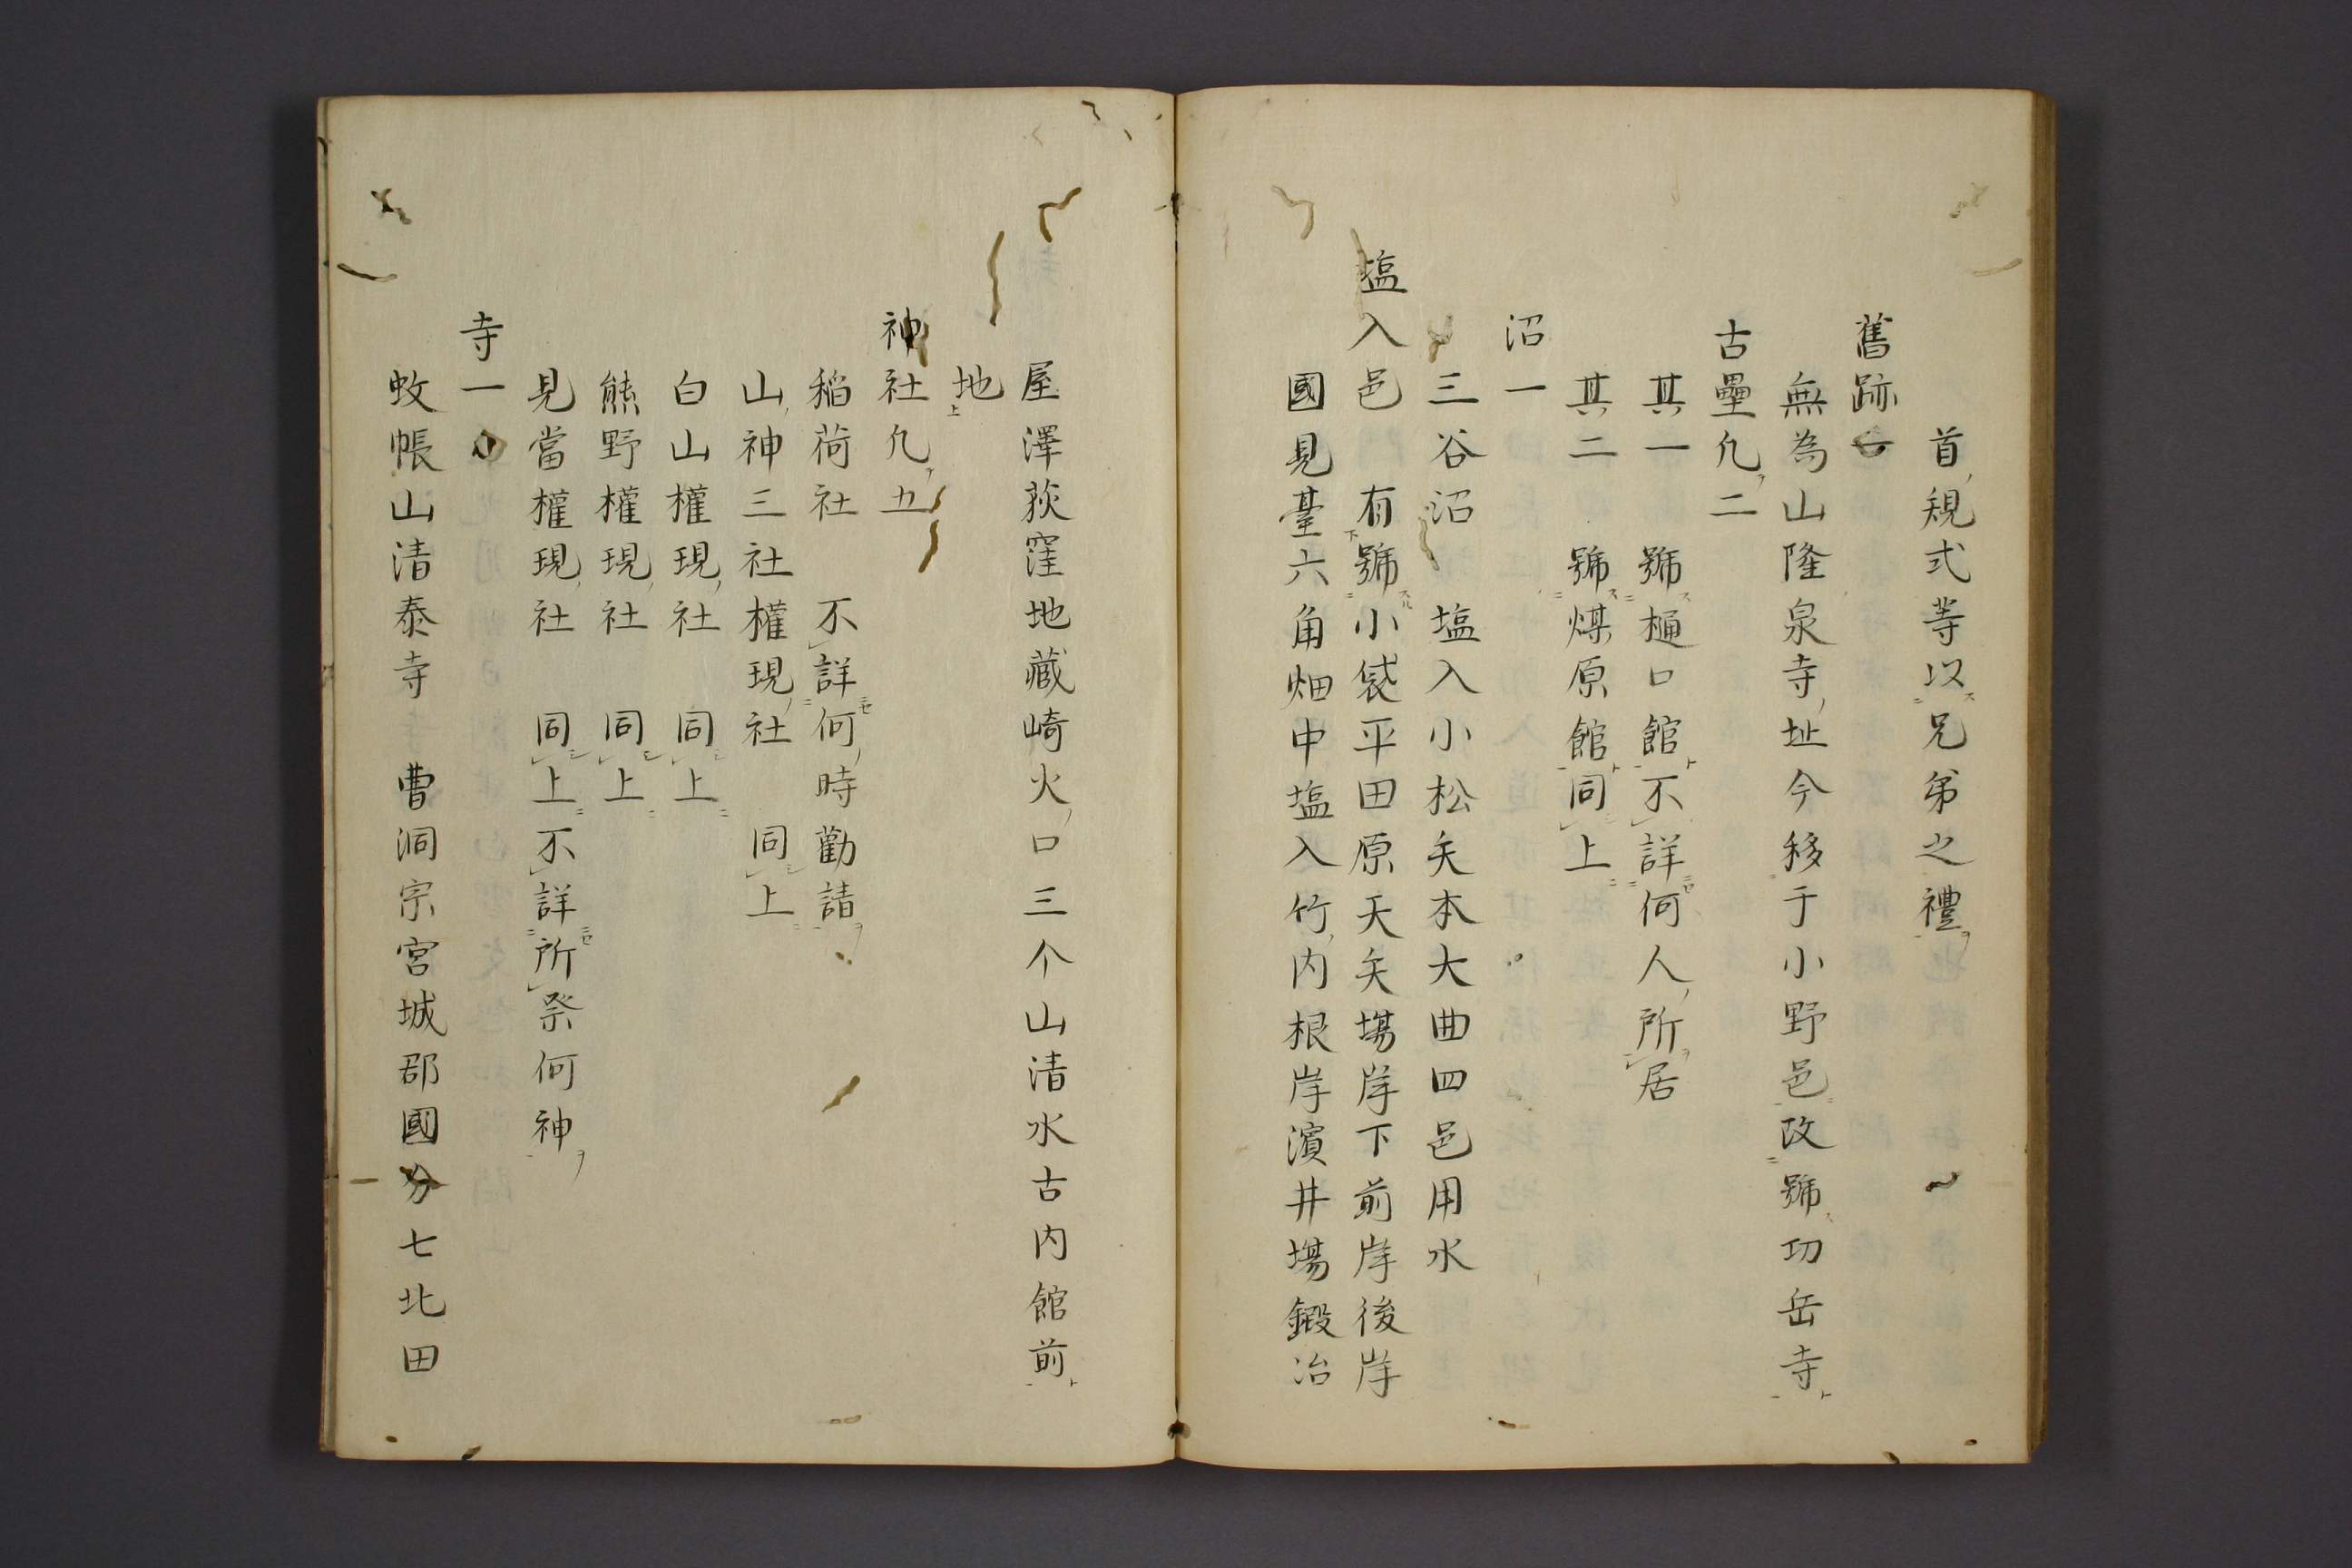 首規式等以兄弟之禮
舊跡一
無為山隆泉寺址今移于小野邑改號功岳寺
古壘凡二
其一 號樋口館不詳何人所居
其二 號煤原館同上
沼一
三谷沼 塩入小松矢本大曲四邑用水
塩入邑 有號小袋平田原天矢場岸下前岸後岸
國見䑓六角畑中塩入竹内根岸濱井場鍛冶
屋澤荻窪地藏崎火口三个山清水古内館前
地
神社凡五
稲荷社 不詳何時勸請
山神三社權現社 同上
白山權現社 同上
熊野權現社 同上
見當權現社 同上不詳所祭何神
寺一
蚊帳山清泰寺 曹洞宗宮城郡國分七北田